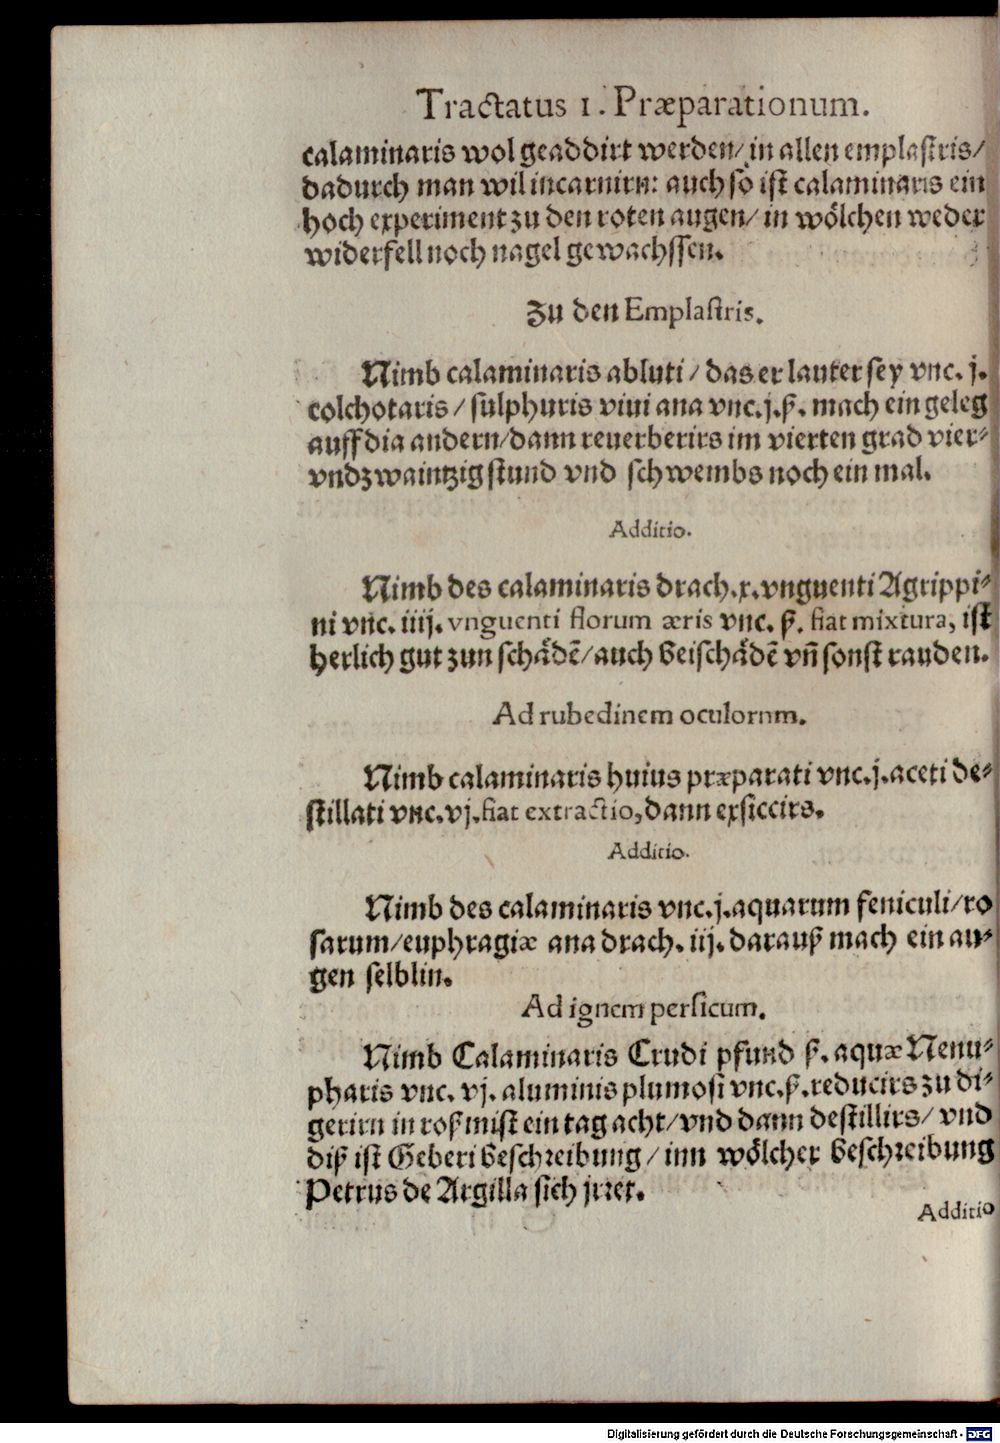 Tractatus 1. Præparationum.
calaminaris wol geaddirt werden/ in allen emplastris/
dadurch man wil incarnirn: auch so ist calaminaris ein
hoch experiment zu den roten augen/ in wölchen weder
widerfell noch nagel gewachssen.
Zu den Emplastris.
Nimb calaminaris abluti / das er lauter sey vnc. j.
colchotaris / sulphuris viui ana vnc. j. ß. mach ein geleg
auff dia andern/ dann reuerberirs im vierten grad vier-
vndzwaintzig stund vnd schwembs noch ein mal.
Additio.
Nimb des calaminaris drach. x. vnguenti Agrippi-
ni vnc. iiij. vnguenti florum æris vnc. ß. fiat mixtura, ist
herlich gut zun schädē/ auch beischädē vñ sonst rauden.
Ad rubedinem oculorum.
Nimb calaminaris huius præparati vnc. j. aceti de-
stillati vnc. vj. fiat extractio, dann exsiccirs.
Additio.
Nimb des calaminaris vnc. j. aquarum feniculi/ ro
sarum/ euphragiæ ana drach. iij. darauß mach ein au-
gen selblin.
Ad ignem persicum.
Nimb Calaminaris Crudi pfund ß. aquæ Nenu-
pharis vnc. vj. aluminis plumosi vnc. ß. reducirs zu di-
gerirn in roß mist ein tag acht/ vnd dann destillirs/ vnd
diß ist Geberi beschreibung / inn wölcher beschreibung
Petrus de Argilla sich jrret.
Additio
Digitalisierung gefördert durch die Deutsche Forschungsgemeinschaft - DFG